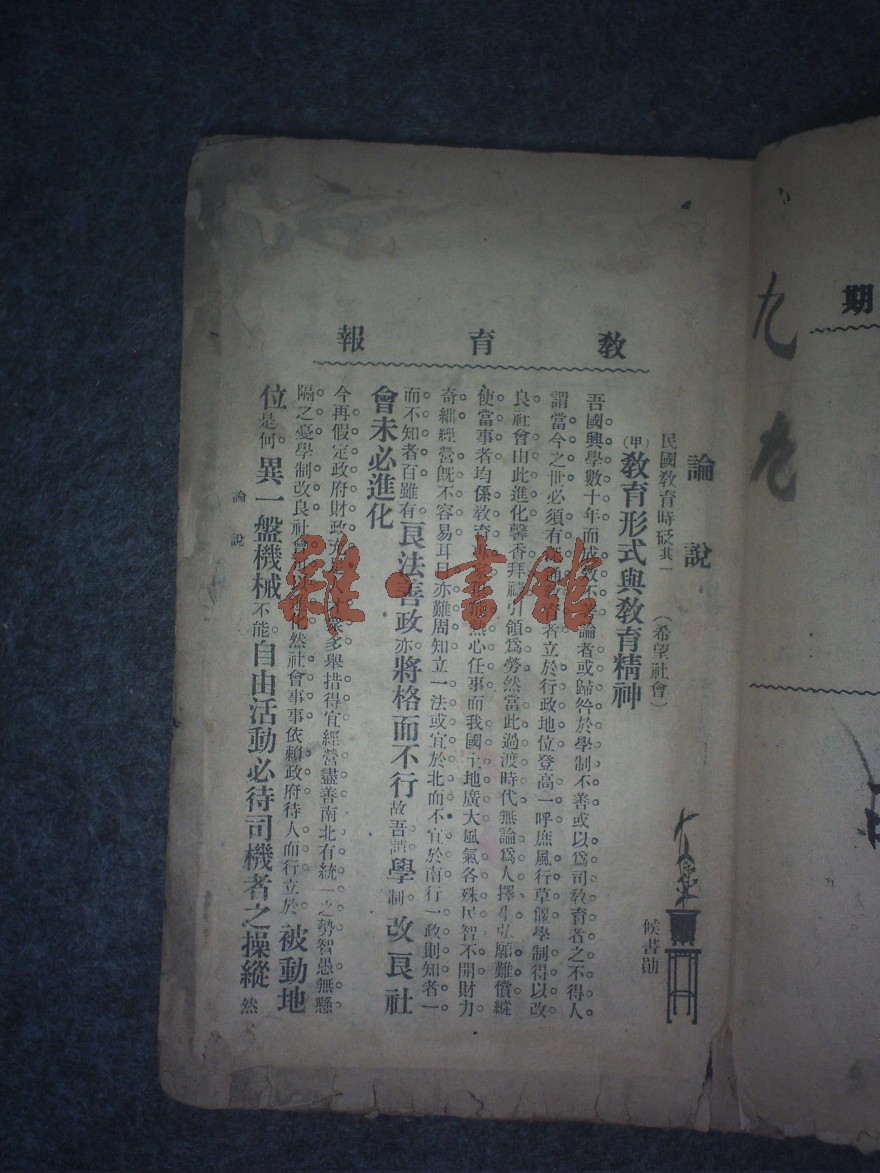 教育報
論說
民國教育時砭其一 (希望社會) 候書勛
(甲)教育形式與教育精神
吾國興學數十年而成效不著論者或歸咎於學制不善或以爲司教育者之不得人
謂當今之世必須有者立於行政地位登高一呼庶風行草偃學制得以改
良社會由此進化馨香拜禱引領爲勞然當此過渡時代無論爲人擇事弘願難償縱
使當事者均係教育熱心任事而我國土地廣大風氣各殊民智不開財力
奇絀經營旣不容易耳目亦難周知立一法或宜於北而不宜於南行一政則知者一
而不知者百雖有良法善政亦將格而不行故吾謂學制改良社
會未必進化
今再假定政府財政多舉措得宜經營盡善南北有統一之勢智愚無懸
隔之憂學制改良社會然社會事事依賴政府待人而行立於被動地
位是何異一盤機械不能自由活動必待司機者之操縱然
論說
期
九
九
雜·書館